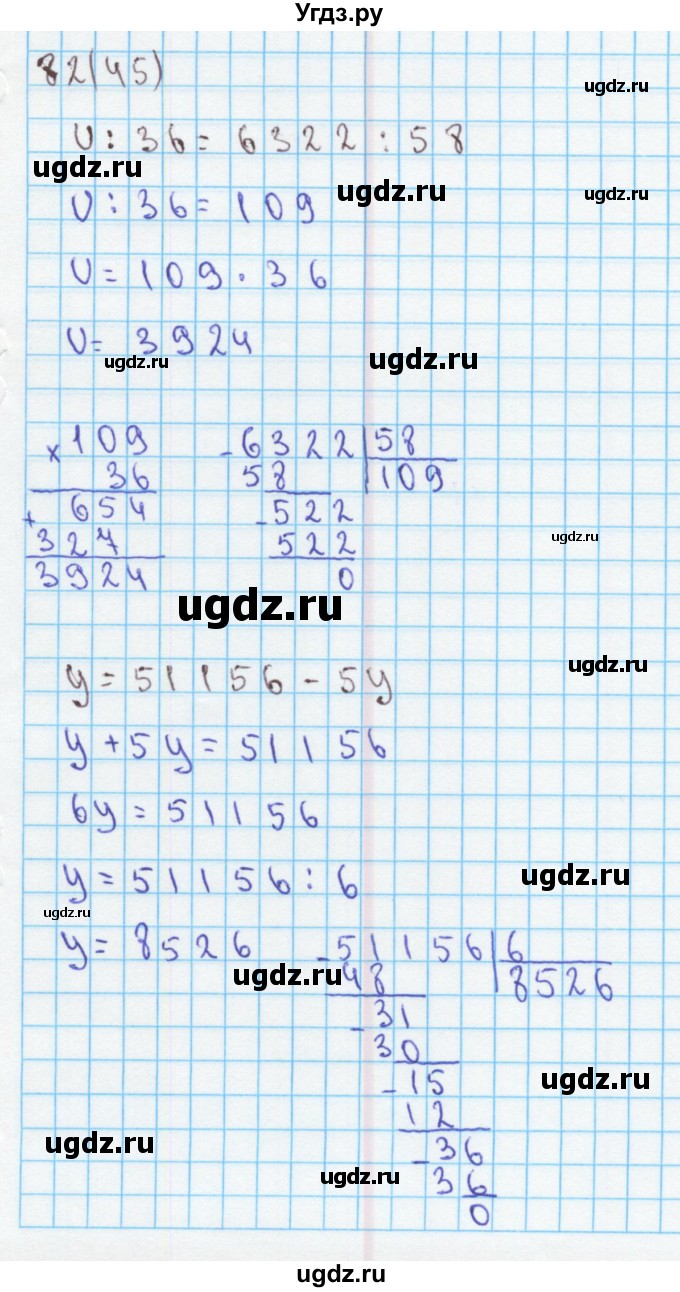 Угдз.ру
82(45)
ugdz.ru
U : 36 = 6322 : 58
ugdz.ru
ugdz.ru
ugdz.ru
U : 36 = 109
U = 109 · 36
U = 3924
ugdz.ru
ugdz.ru
× 109
36
+ 654
327
3924
- 6322 | 58
58 | 109
- 522
522
0
ugdz.ru
ugdz.ru
ugdz.ru
y = 51156 - 5y
y + 5y = 51156
6y = 51156
y = 51156 : 6
ugdz.ru
ugdz.ru
y = 8526
ugdz.ru
- 51156 | 6
48 | 8526
- 31
30
- 15
12
- 36
36
0
ugdz.ru
ugdz.ru
ugdz.ru
ugdz.ru
ugdz.ru